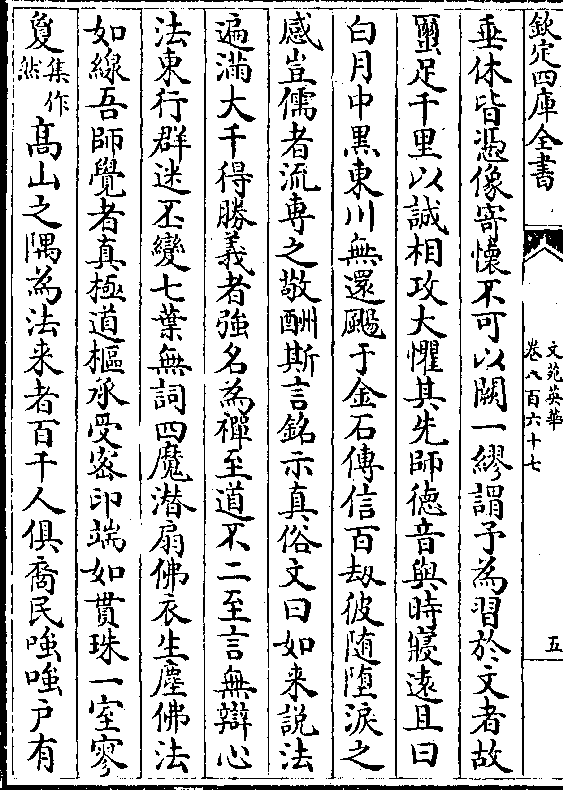 欽定四庫全書
文苑英華
卷八百六十七
五
垂休皆憑像寄懷不可以闕一繆謂予為習於文者故
璽足千里以誠相攻大懼其先師德音與時寖遠且曰
白月中黑東川無還颺于金石傳信百劫彼隨墮淚之
感豈儒者流專之敬酬斯言銘示真俗文曰如来說法
遍滿大千得勝義者強名為禪至道不二至言無辯心
法東行群迷丕變七葉無詞四魔潛扇佛衣生塵佛法
如線吾師覺者真極道樞承受宻印端如貫珠一室寥
夐集作然髙山之隅為法来者百千人俱裔民嗤嗤户有